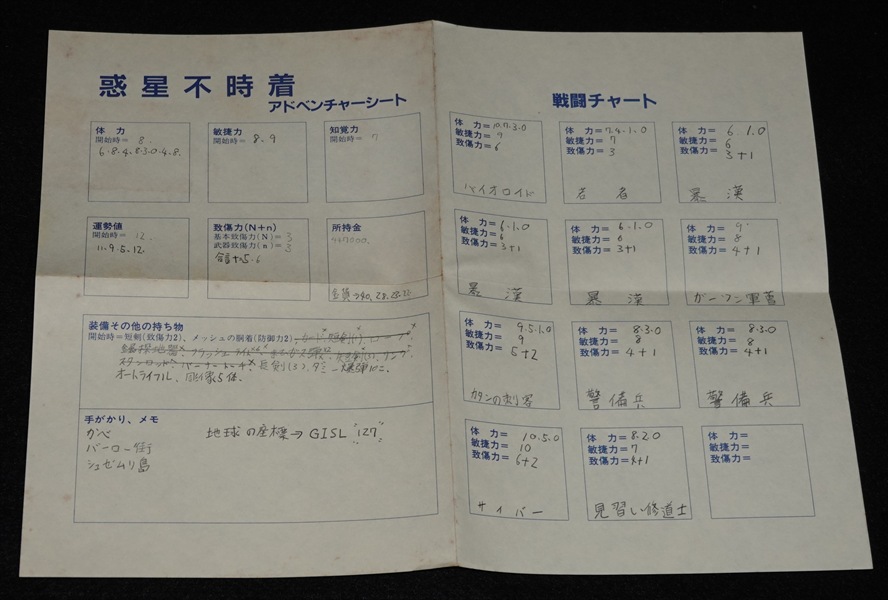 惑星不時着
アドベンチャーシート
体　力
開始時＝ 8.
6.8.4.8.3.0.4.8.
敏捷力
開始時＝ 8、9
知覚力
開始時＝ 7
運勢値
開始時＝ 12.
11.9.5.12.
致傷力(N＋n)
基本致傷力(N)＝ 3
武器致傷力(n)＝ 3
所持金
装備その他の持ち物
開始時＝短剣(致傷力2)、メッシュの胴着(防御力2)
オートライフル、彫像5体、
手がかり、メモ
かべ
バーロー街
シュゼムリ島
地球の座標→GISL "127"
戦闘チャート
体　力＝10.7.3.0
敏捷力＝ 9
致傷力＝6
バイオロイド
体　力＝7.4.1.0
敏捷力＝ 7
致傷力＝ 3
若者
体　力＝ 6.1.0
敏捷力＝ 6
致傷力＝ 3+1
暴漢
体　力＝ 6.1.0
敏捷力＝6
致傷力＝3+1
暴漢
体　力＝ 6.1.0
敏捷力＝ 6
致傷力＝ 3+1
暴漢
体　力＝ 9
敏捷力＝ 8
致傷力＝ 4+1
ガーフン軍曹
体　力＝ 9.5.1.0
敏捷力＝ 9
致傷力＝ 5+2
カタンの刺客
体　力＝ 8.3.0
敏捷力＝ 8
致傷力＝ 4+1
警備兵
体　力＝ 8.3.0
敏捷力＝ 8
致傷力＝ 4+1
警備兵
体　力＝ 10.5.0
敏捷力＝ 10
致傷力＝ 6+2
サイバー
体　力＝8.2.0
敏捷力＝7
致傷力＝4+1
見習い修道士
体　力＝
敏捷力＝
致傷力＝